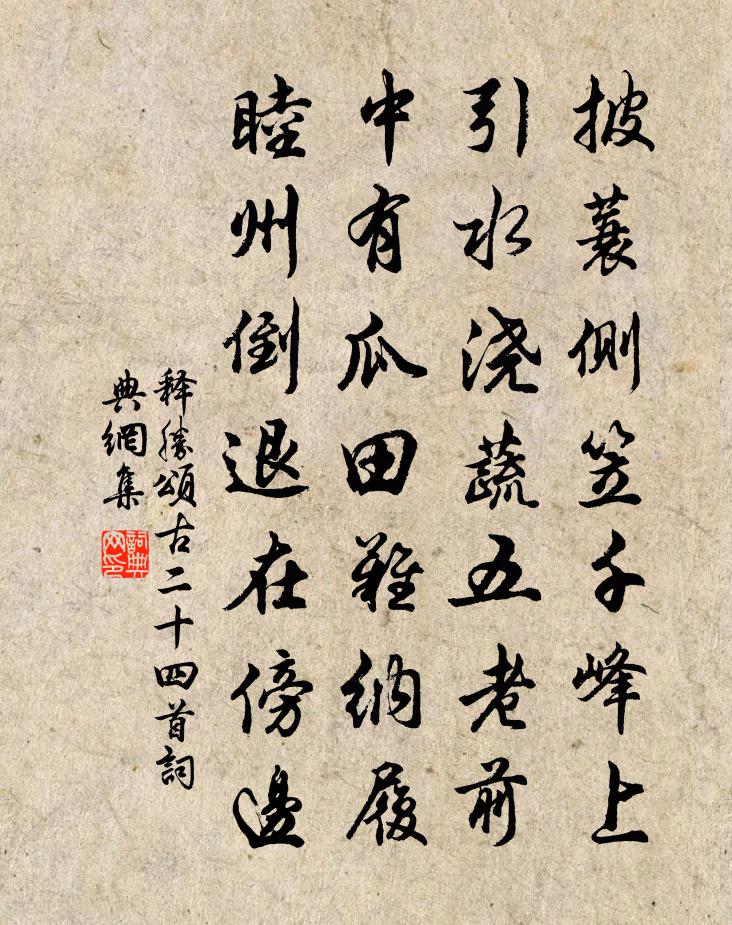 披蓑侧笠千峰上
引水浇蔬五老前
中有瓜田難纳履
睦州倒退在傍邊
释勝頌古二十四首詞
典網集
詞典
网印